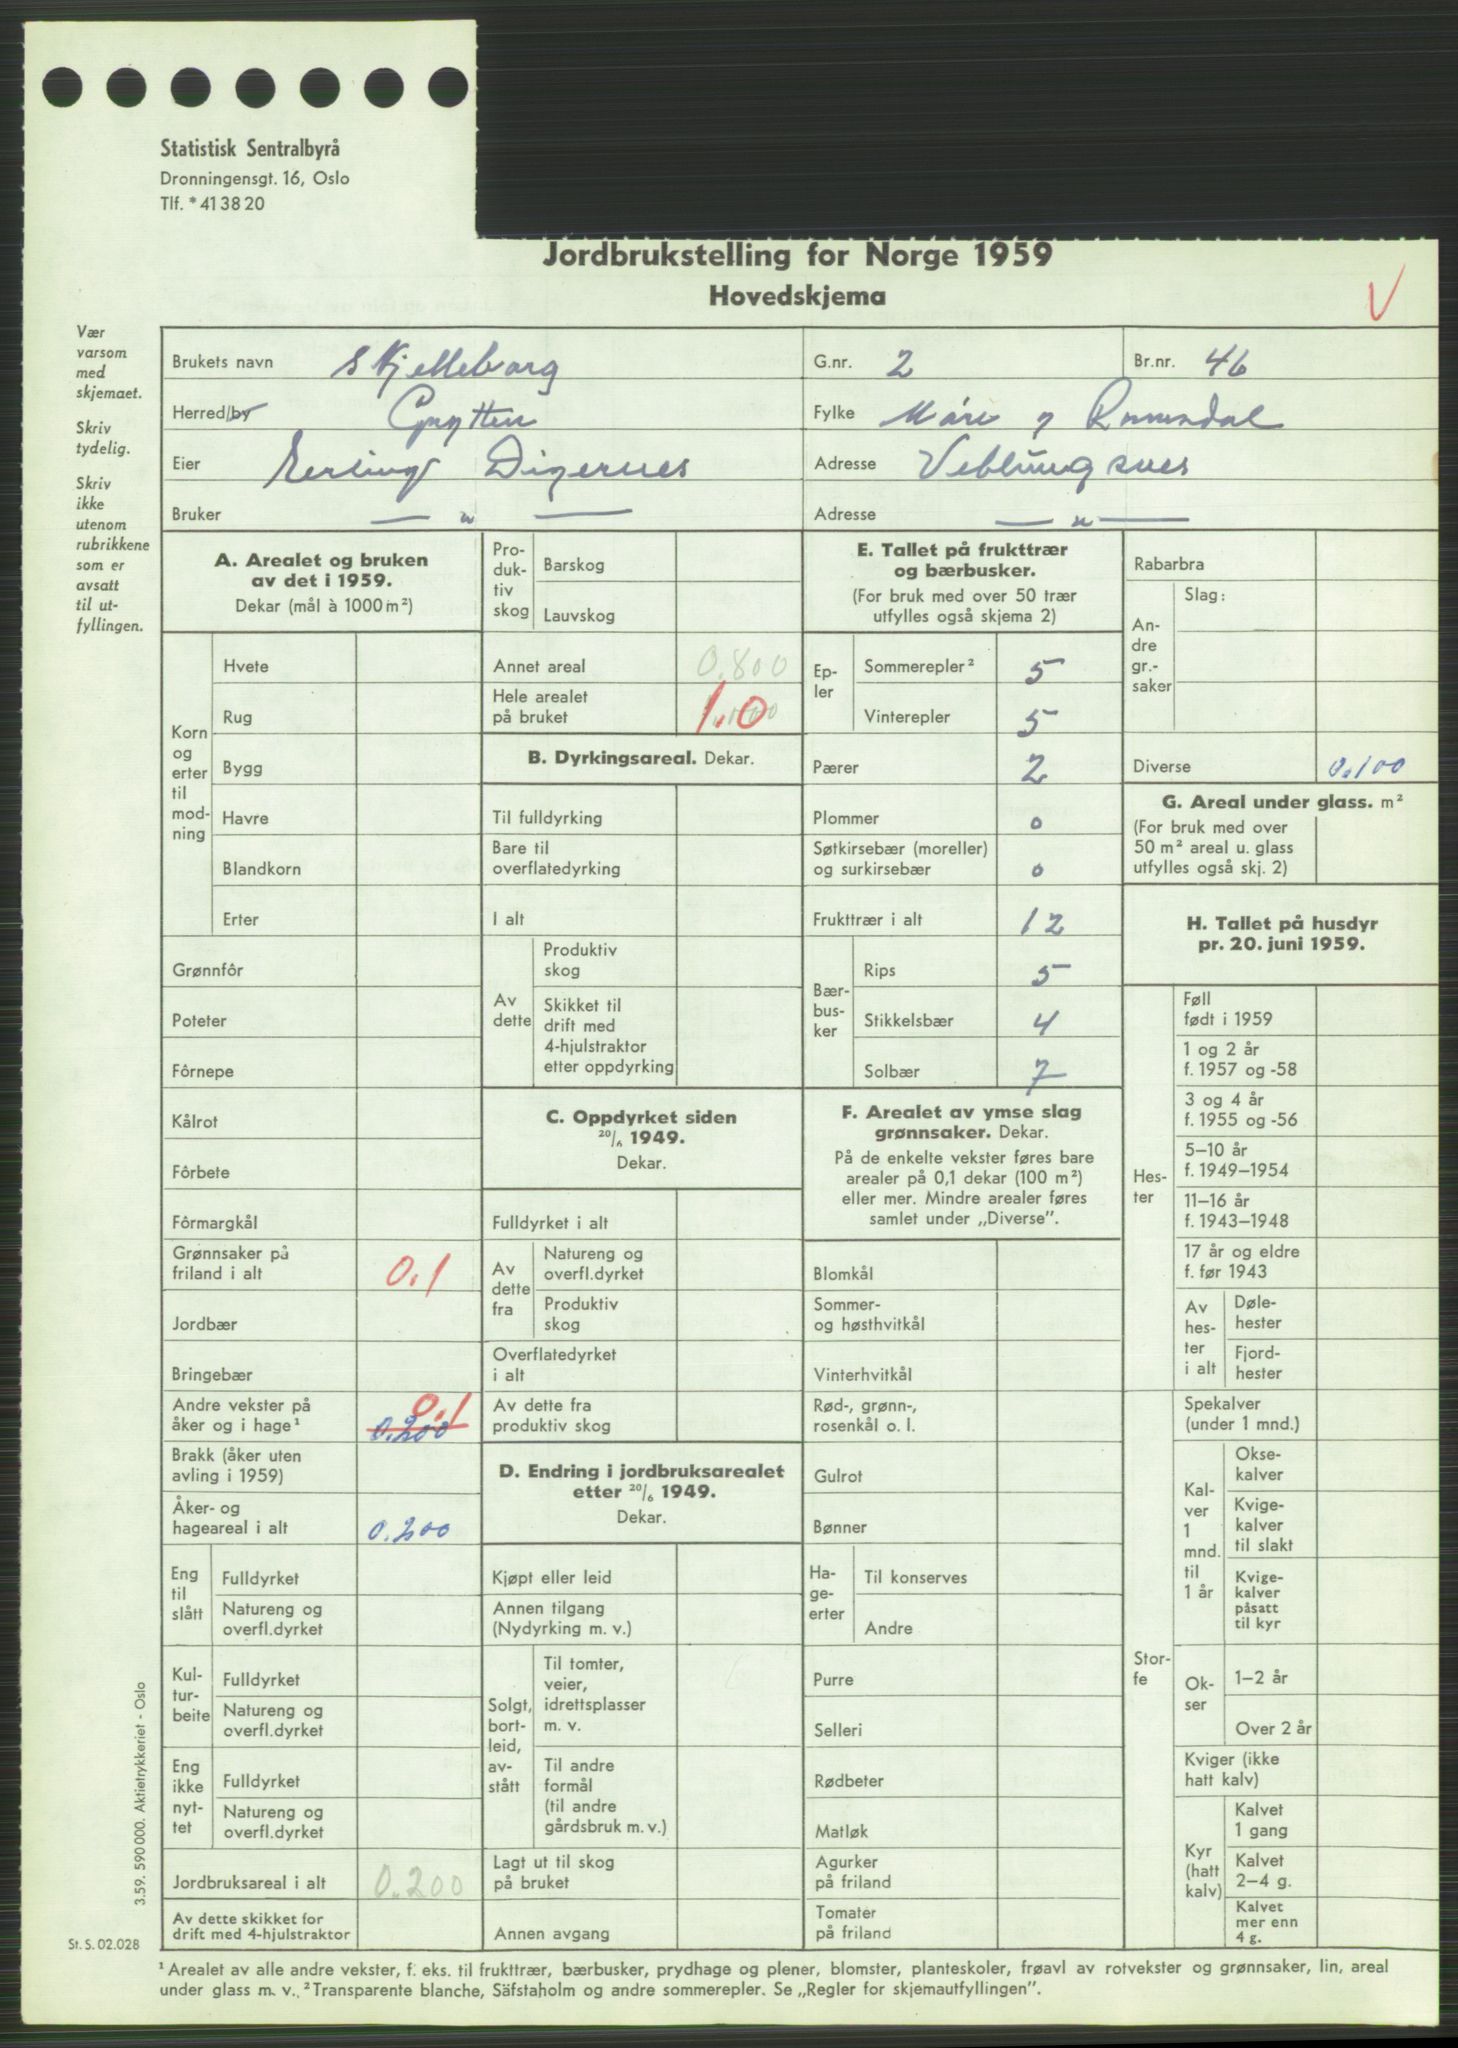 Statistisk Sentralbyrå
Dronningensgt. 16, Oslo
Tlf. *41 38 20
Jordbrukstelling for Norge 1959
Hovedskjema
V
Vær
varsom
med
skjemaet.
Skriv
tydelig.
Skriv
ikke
utenom
rubrikkene
som er
avsatt
til ut-
fyllingen.
Brukets navn Skjelleborg G.nr. 2 Br.nr. 46
Herred/by Grytten Fylke Møre og Romsdal
Eier Erling Digernes Adresse Veblungsnes
Bruker — " — Adresse — " —
A. Arealet og bruken
av det i 1959.
Dekar (mål à 1000 m²)
Korn
og
erter
til
mod-
ning
Hvete
Rug
Bygg
Havre
Blandkorn
Erter
Grønnfôr
Poteter
Fôrnepe
Kålrot
Fôrbete
Fôrmargkål
Grønnsaker på
friland i alt 0.1
Jordbær
Bringebær
Andre vekster på 0.1
åker og i hage¹ 0.200
Brakk (åker uten
avling i 1959)
Åker- og
hageareal i alt 0.200
Eng
til
slått
Fulldyrket
Natureng og
overfl.dyrket
Kul-
tur-
beite
Fulldyrket
Natureng og
overfl.dyrket
Eng
ikke
nyt-
tet
Fulldyrket
Natureng og
overfl.dyrket
Jordbruksareal i alt 0.200
Av dette skikket for
drift med 4-hjulstraktor
Pro-
duk-
tiv
skog
Barskog
Lauvskog
Annet areal 0.800
Hele arealet
på bruket 1.0
B. Dyrkingsareal. Dekar.
Til fulldyrking
Bare til
overflatedyrking
I alt
Av
dette
Produktiv
skog
Skikket til
drift med
4-hjulstraktor
etter oppdyrking
C. Oppdyrket siden
20/6 1949.
Dekar.
Fulldyrket i alt
Av
dette
fra
Natureng og
overfl.dyrket
Produktiv
skog
Overflatedyrket
i alt
Av dette fra
produktiv skog
D. Endring i jordbruksarealet
etter 20/6 1949.
Dekar.
Kjøpt eller leid
Annen tilgang
(Nydyrking m. v.)
Solgt,
bort-
leid,
av-
stått
Til tomter,
veier,
idrettsplasser
m. v.
Til andre
formål
(til andre
gårdsbruk m. v.)
Lagt ut til skog
på bruket
Annen avgang
E. Tallet på frukttrær
og bærbusker.
(For bruk med over 50 trær
utfylles også skjema 2)
Ep-
ler
Sommerepler² 5
Vinterepler 5
Pærer 2
Plommer 0
Søtkirsebær (moreller)
og surkirsebær 0
Frukttrær i alt 12
Bær-
bus-
ker
Rips 5
Stikkelsbær 4
Solbær 7
F. Arealet av ymse slag
grønnsaker. Dekar.
På de enkelte vekster føres bare
arealer på 0,1 dekar (100 m²)
eller mer. Mindre arealer føres
samlet under „Diverse”.
Blomkål
Sommer-
og høsthvitkål
Vinterhvitkål
Rød-, grønn-,
rosenkål o. l.
Gulrot
Bønner
Ha-
ge-
erter
Til konserves
Andre
Purre
Selleri
Rødbeter
Matløk
Agurker
på friland
Tomater
på friland
Rabarbra
An-
dre
gr.-
saker
Slag:
Diverse 0.100
G. Areal under glass. m²
(For bruk med over
50 m² areal u. glass
utfylles også skj. 2)
H. Tallet på husdyr
pr. 20. juni 1959.
Hes-
ter
Føll
født i 1959
1 og 2 år
f. 1957 og -58
3 og 4 år
f. 1955 og -56
5–10 år
f. 1949–1954
11–16 år
f. 1943–1948
17 år og eldre
f. før 1943
Av
hes-
ter
i alt
Døle-
hester
Fjord-
hester
Stor-
fe
Spekalver
(under 1 mnd.)
Kal-
ver
1
mnd.
til
1 år
Okse-
kalver
Kvige-
kalver
til slakt
Kvige-
kalver
påsatt
til kyr
Ok-
ser
1–2 år
Over 2 år
Kviger (ikke
hatt kalv)
Kyr
(hatt
kalv)
Kalvet
1 gang
Kalvet
2–4 g.
Kalvet
mer enn
4 g.
3.59. 590 000. Aktietrykkeriet - Oslo
St. S. 02.028
¹ Arealet av alle andre vekster, f. eks. til frukttrær, bærbusker, prydhage og plener, blomster, planteskoler, frøavl av rotvekster og grønnsaker, lin, areal
under glass m. v., ² Transparente blanche, Säfstaholm og andre sommerepler. Se „Regler for skjemautfyllingen”.